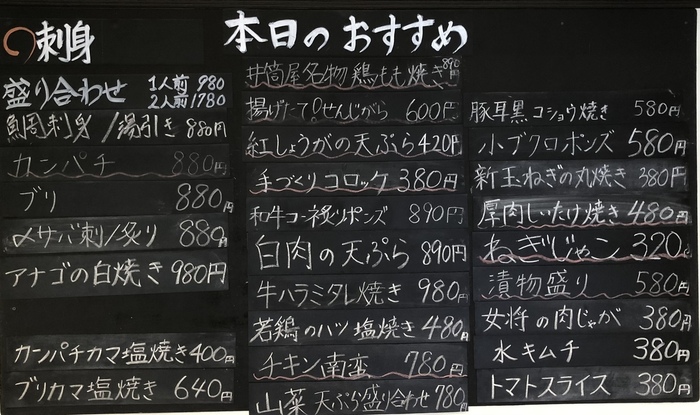 の刺身
盛り合わせ 1人前 980
2人前 1780
鯛刺身/湯引き 880円
カンパチ 880円
ブリ 880円
〆サバ刺/炙り 880円
アナゴの白焼き 980円
カンパチカマ塩焼き 400円
ブリカマ塩焼き 640円
本日のおすすめ
井筒屋名物 鶏もも焼き 890円
揚げたて!せんじがら 600円
紅しょうがの天ぷら 420円
手づくりコロッケ 380円
和牛コーネ炙りポンズ 890円
白肉の天ぷら 890円
牛ハラミタレ焼き 980円
若鶏のハツ塩焼き 480円
チキン南蛮 780円
山菜天ぷら盛り合わせ 780円
豚耳黒コショウ焼き 580円
小ブクロポンズ 580円
新玉ねぎの丸焼き 380円
厚肉しいたけ焼き 480円
ねぎじゃこ 320円
漬物盛り 580円
女将の肉じゃが 380円
水キムチ 380円
トマトスライス 380円